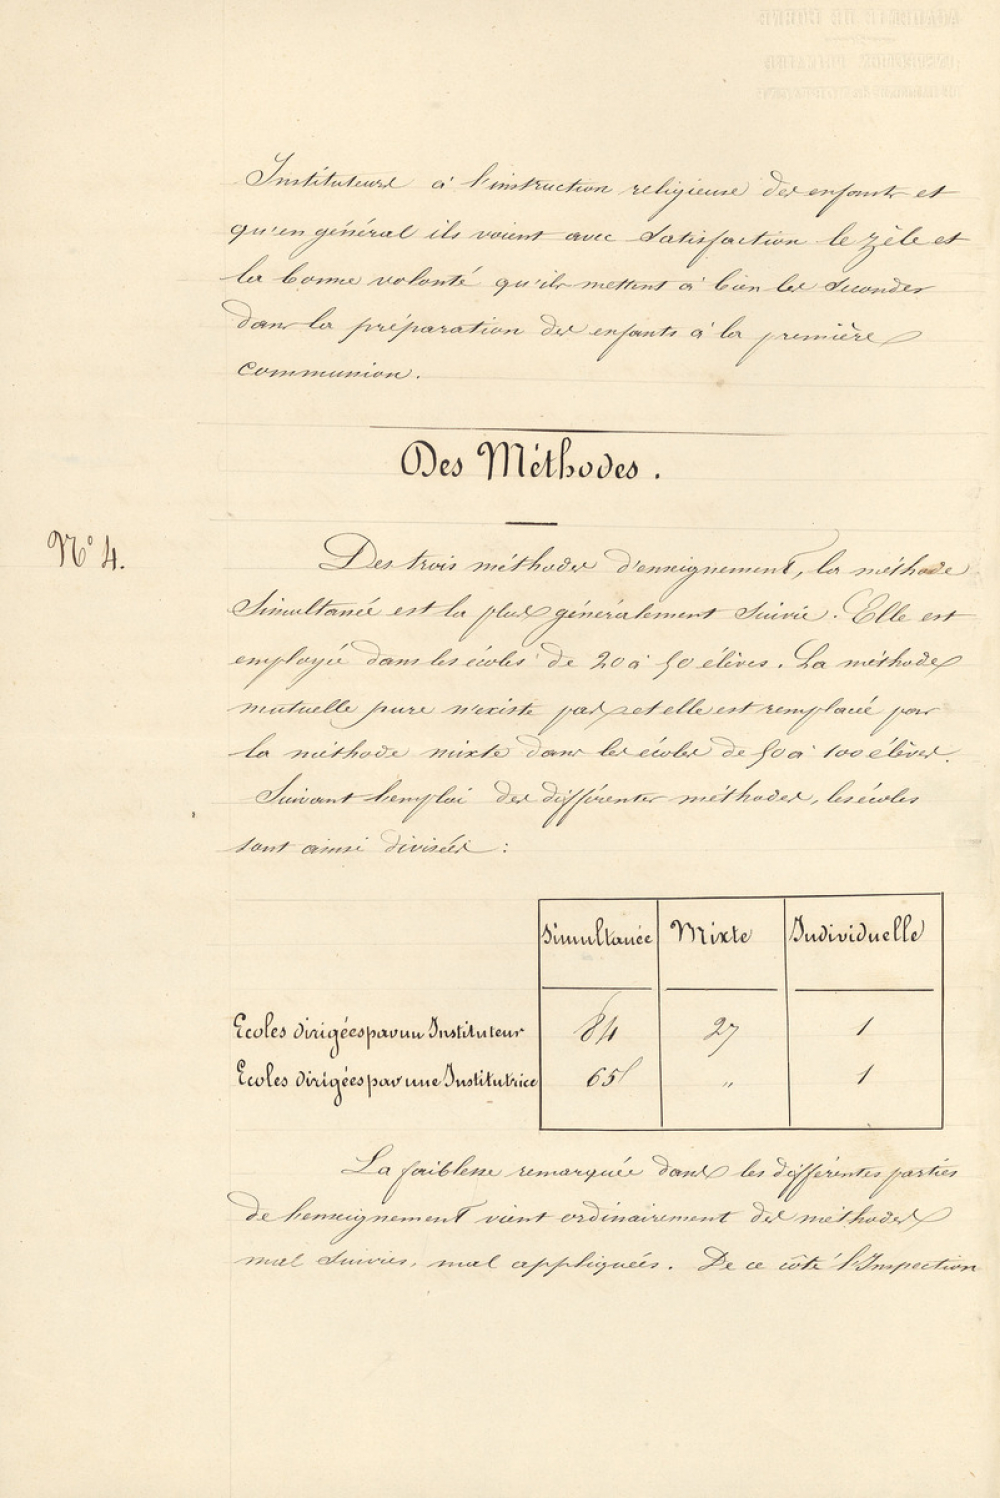 Instituteurs à l'instruction religieuse des enfants et
qu'en général ils voient avec satisfaction le zèle et
la bonne volonté qu'ils mettent à bien les seconder
dans la préparation des enfants à la première
communion.
Des Méthodes.
N° 4.
Des trois méthodes d'enseignement, la méthode
Simultanée est la plus généralement suivie. Elle est
employée dans les écoles de 20 à 50 élèves. La méthode
mutuelle pure n'existe pas et elle est remplacée par
la méthode mixte dans les écoles de 50 à 100 élèves.
Suivant l'emploi des différentes méthodes, les écoles
sont ainsi divisées :
Simultanée Mixte Individuelle
Ecoles dirigées par un Instituteur 84 27 1
Ecoles dirigées par une Institutrice 65 " 1
La faiblesse remarquée dans les différentes parties
de l'enseignement vient ordinairement des méthodes
mal suivies, mal appliquées. De ce côté l'Inspection